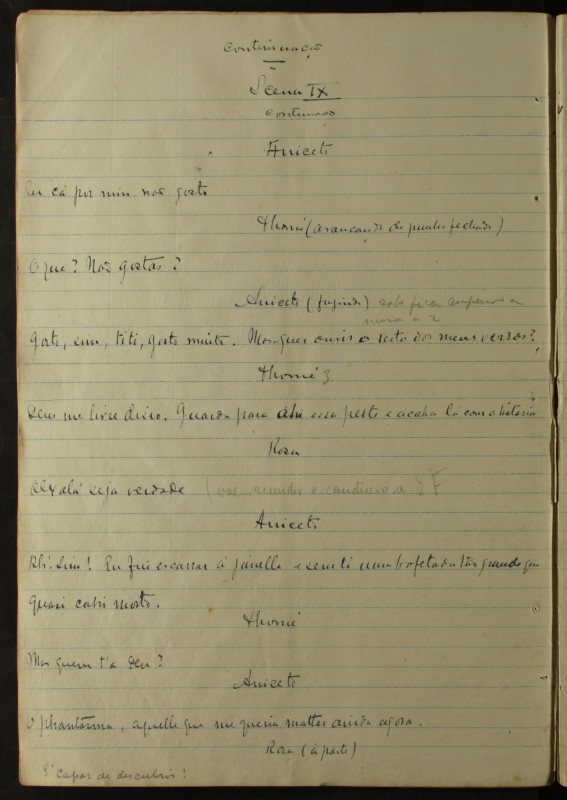 Continuação
Scena IX
continuando
Aniceto
Eu cá por mim não gosto
Thomé (avançando de punhos fechados)
O que? Não gostas?
Aniceto (fugindo)
Gosto, sim, titi, gosto muito. Mas quer ouvir o resto dos meus versos?
Thomé 3
Deus me livre disso. Guarda para ahi essa peste e acaba lá com a historia
Rosa
Oxalá seja verdade
Aniceto
Ah! Sim! Eu fui escarrar á janella e senti uma bofetada tão grande que
quasi cahi morto.
Thomé
Mas quem t'a deu?
Aniceto
O phantasma, aquelle que me queria mattar ainda agora.
Rosa (á parte)
É capaz de descubrir!